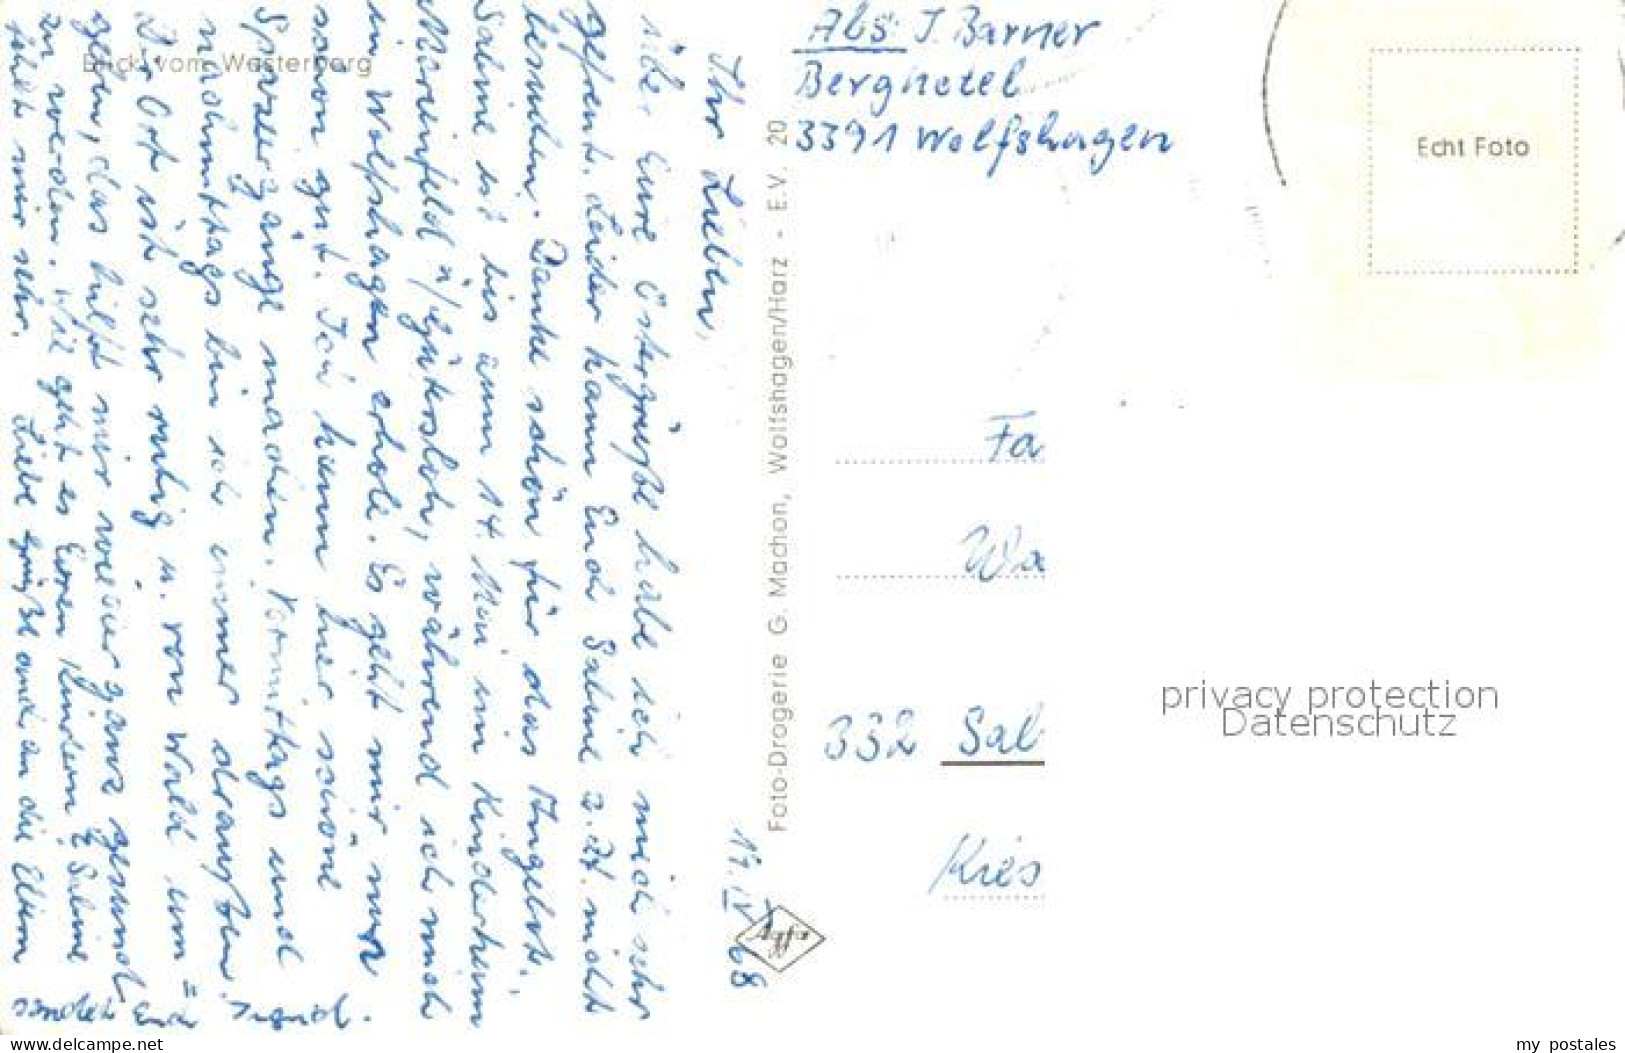 Blick vom Westerberg
Abs. J. Barner
Berghotel
3391 Wolfshagen
Echt Foto
17. IV. 68
Ihr Lieben,
über Eure Ostergrüße habe ich mich sehr
gefreut. Leider kann Euch Sabine z. Zt. nicht
besuchen. Danke schön für das Angebot.
Sabine ist bis zum 14. Mai im Kinderheim
während ich mich
in Wolfshagen erhole. Es geht mir nun
schon gut. Ich kann hier schöne
Spaziergänge machen. Vormittags und
nachmittags bin ich immer draußen.
Der Ort ist sehr ruhig u. von Wald um=
geben, das hilft mir wieder ganz gesund
zu werden. Wie geht es Euren Kindern? Sabine
fehlt mir sehr. Liebe Grüße auch an die Eltern
sendet Euch
Foto-Drogerie G. Machon, Wolfshagen/Harz - E.V. 20
Fa
Wa
332 Sal
Kies
privacy protection
Datenschutz
www.delcampe.net
my_postales